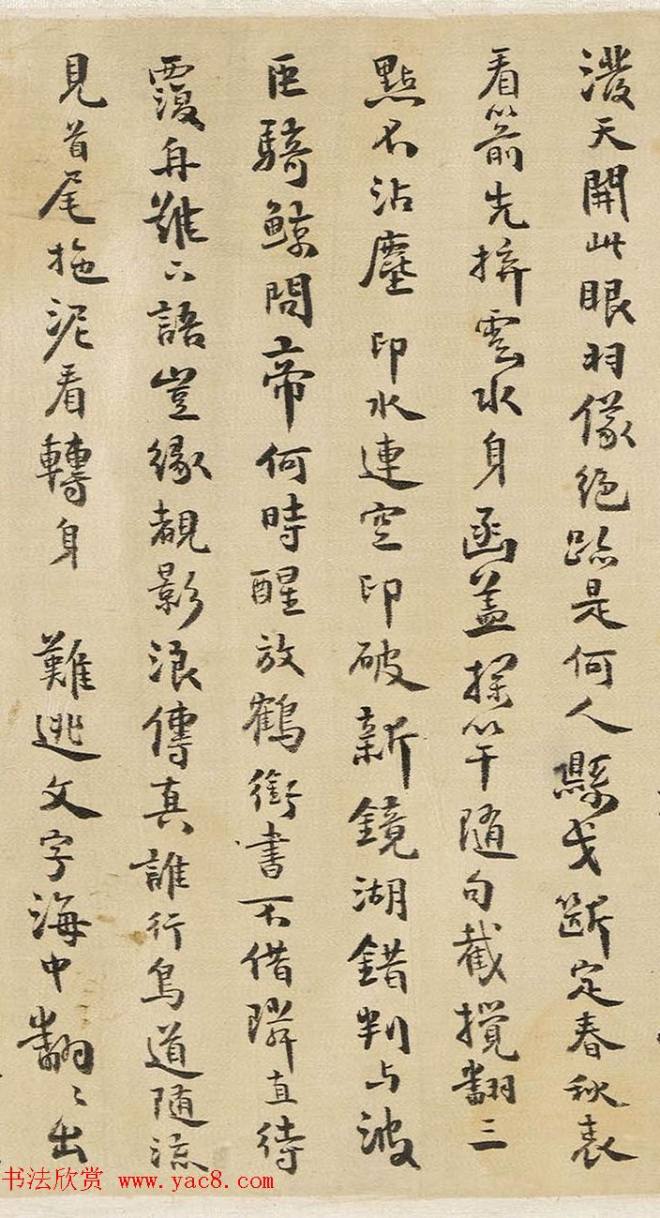 潑天開此眼羽儀絕跡是何人縣戈斷定春秋表
看箭先拚雲水身函蓋探竿隨句截攪翻三
點不沾塵印水連空印破新鏡湖錯判與波
臣騎鯨問帝何時醒放鶴銜書不借隣直待
覆舟難下語豈緣覩影浪傳真誰行鳥道隨流
見首尾拖泥看轉身 難逃文字海中翻〻出
书法欣赏 www.yac8.com